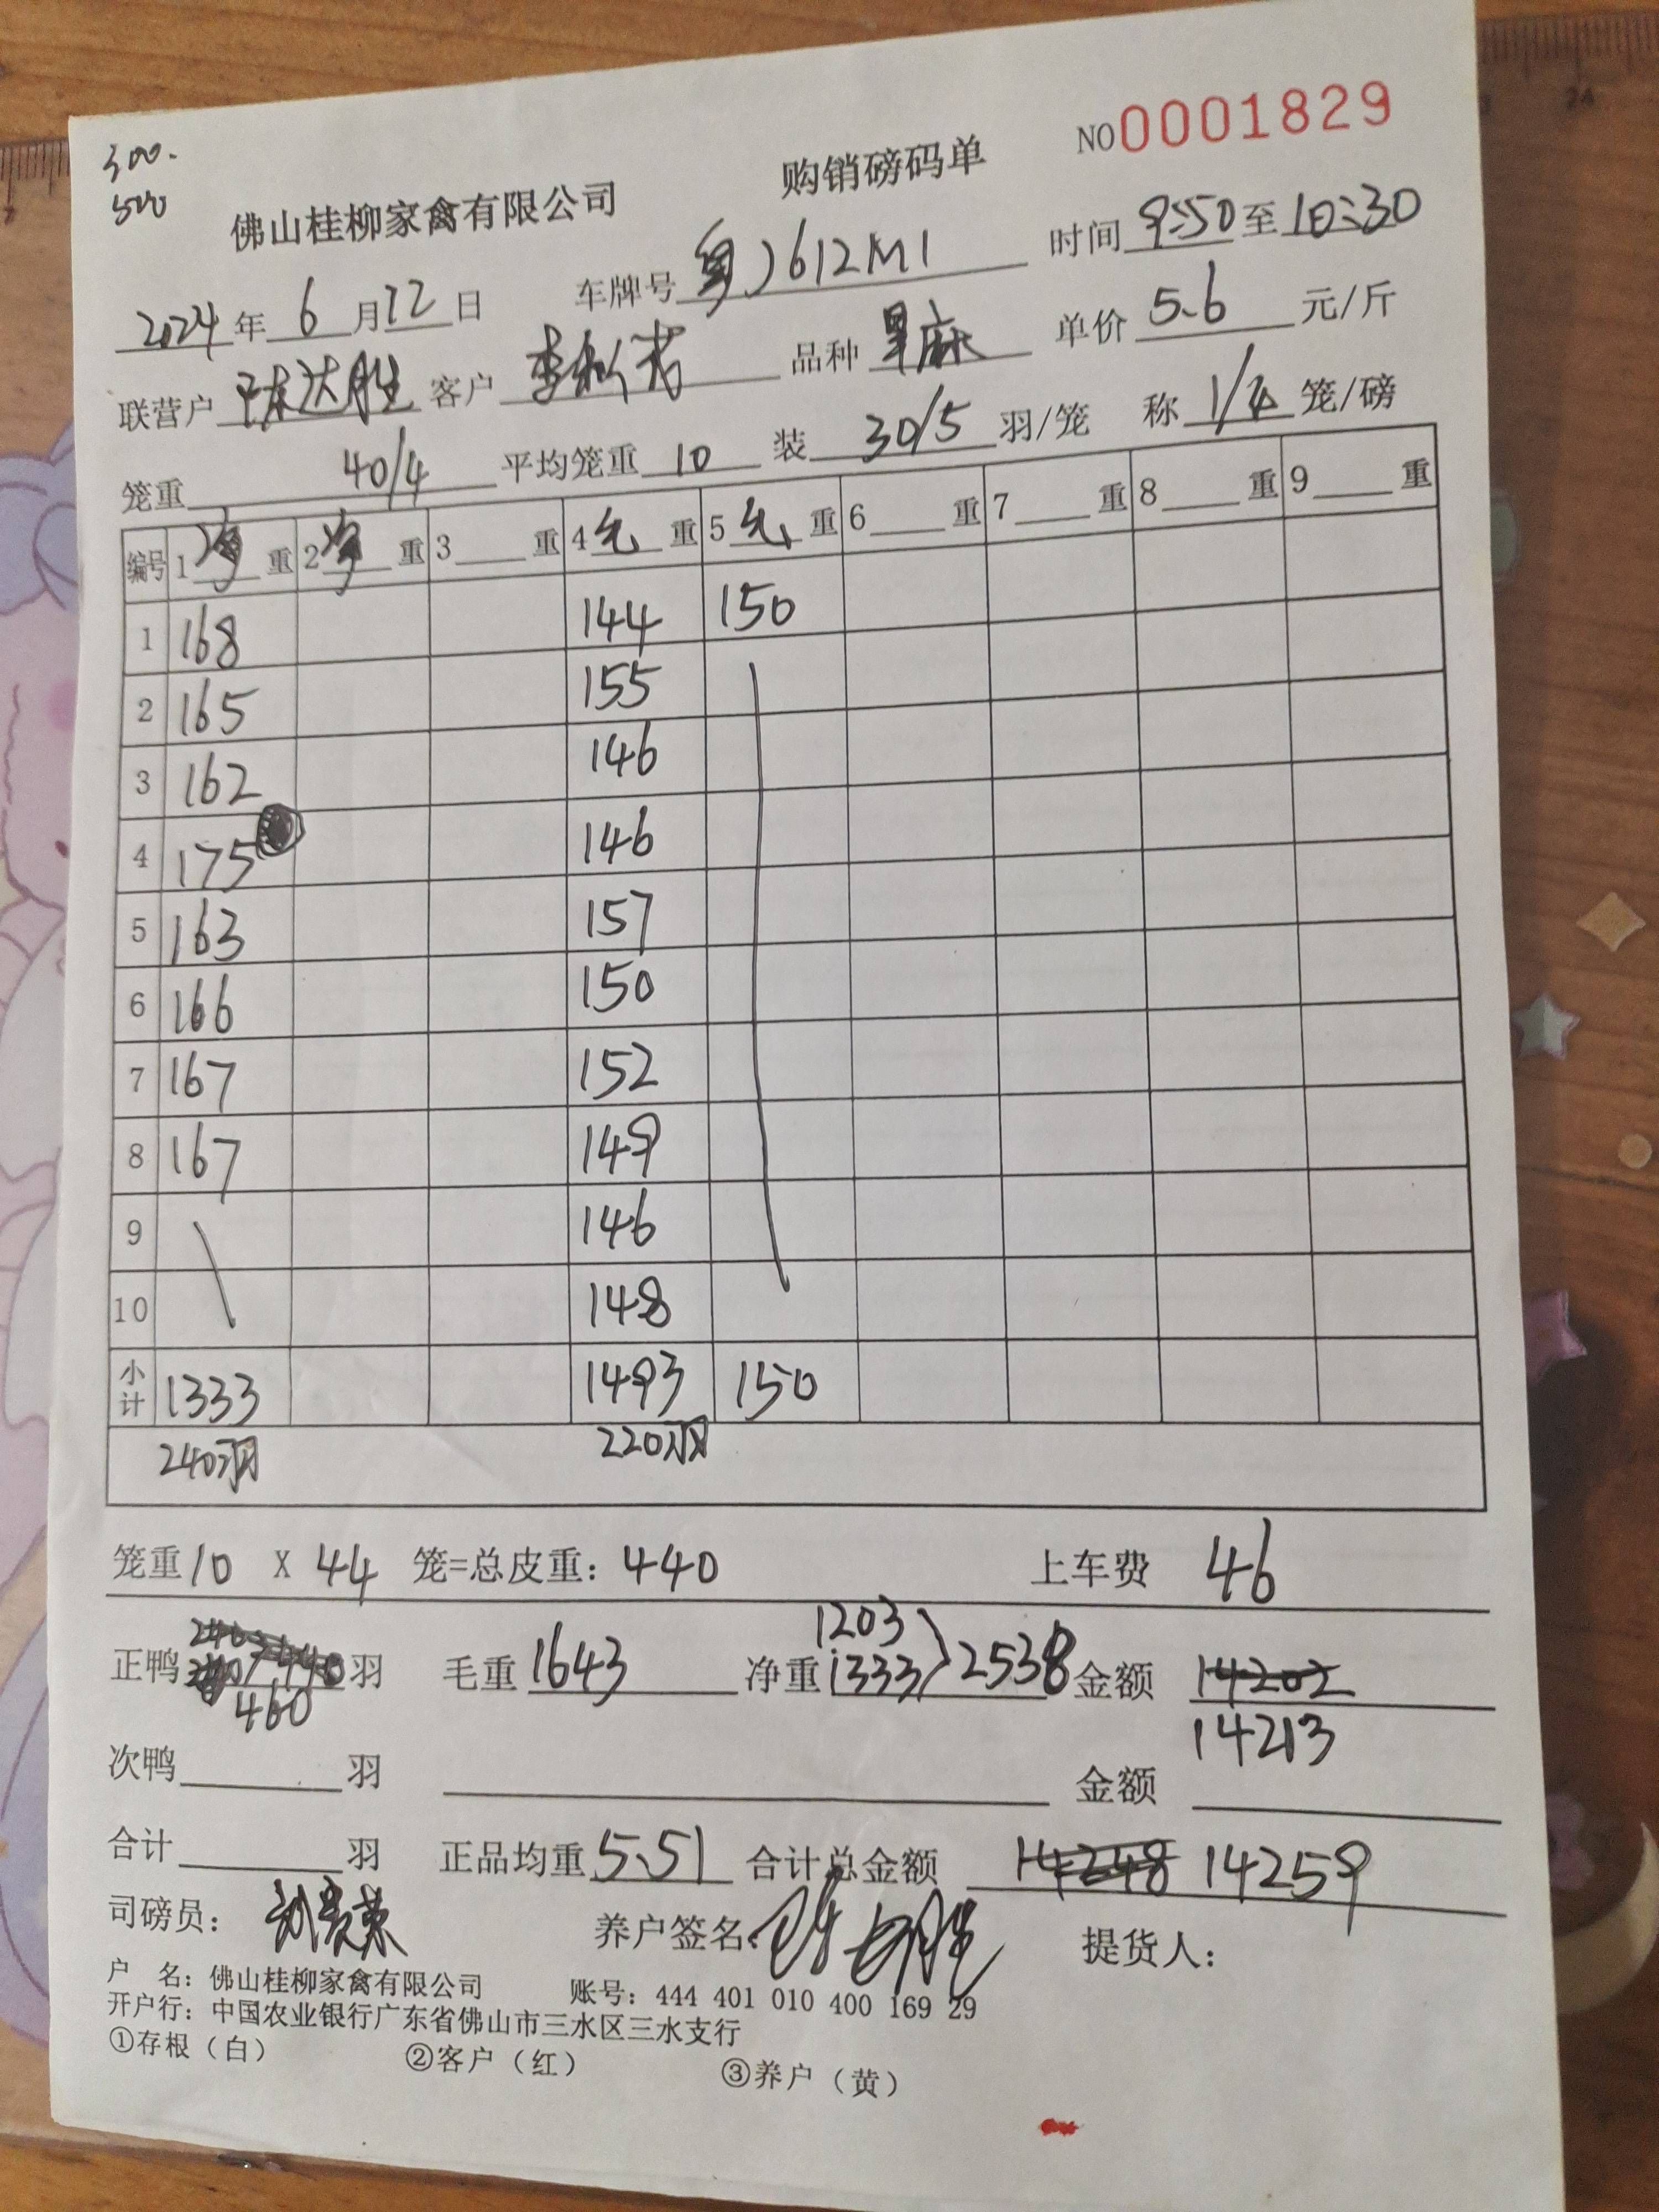 300.
500
NO 0001829
佛山桂柳家禽有限公司 购销磅码单
2024年 6月12日 车牌号 粤J612M1 时间 9:50 至 10:30
联营户 陈达胜 客户 品种 黑麻 单价 5.6 元/斤
笼重 40/4 平均笼重 10 装 30/5 羽/笼 称 1/4 笼/磅
编号 1 重 2 重 3 重 4 重 5 重 6 重 7 重 8 重 9 重
1 168 144 150
2 165 155
3 162 146
4 175 146
5 163 157
6 166 150
7 167 152
8 167 149
9 146
10 148
小计 1333 1493 150
240羽 220羽
笼重 10 X 44 笼=总皮重: 440 上车费 46
1203
正鸭 羽 毛重 1643 净重 1333 2538 金额 14202
460 14213
次鸭 羽 金额
合计 羽 正品均重 5.51 合计总金额 14248 14259
司磅员: 养户签名: 陈达胜 提货人:
户 名: 佛山桂柳家禽有限公司 账号: 444 401 010 400 169 29
开户行: 中国农业银行广东省佛山市三水区三水支行
①存根（白） ②客户（红） ③养户（黄）